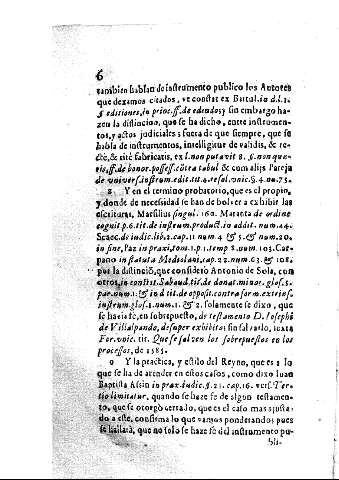 6
tambien hablan de instrumento publico los Autores
que dexamos citados, vt constat ex Bartul. in d. l. 1.
§ editiones, in princ. ff. de edendo; y sin embargo ha-
zen la distincion, que se ha dicho, entre instrumen-
tos, y actos judiciales: fuera de que siempre, que se
habla de instrumentos, intelligitur de validis, & re-
cte, & ritè fabricatis, ex l. non putavit 8. §. non que-
vis, ff. de bonor. possess. cōtra tabul. & cum alijs Pareja
de univers. instrum. edit. tit. 4. resol. unic. §. 4. nu. 73.
8 Y en el termino probatorio, que es el propio,
y donde de necessidad se han de bolver a exhibir las
escrituras, Marsilius singul. 160. Maranta de ordine
cognit. p. 6. tit. de instrum. product. in addit. num. 44.
Scacc. de iudic. lib. 2. cap. 11 num. 4 & 5. & num. 20.
in fine, Paz in praxi, tom. 1. p. 1. temp. 8. num. 103. Car-
pano in statuta Mediolani, cap. 22. num. 63. & 108.
pus la distinciō, que considerò Antonio de Sola, con
otros, in constit. Sabaud. tit. de donat. minor. glos. 5.
par. num. 1. & in d tit. de opposit. contra form. extrins.
instrum. glos. 1. num. 1. & 2. solamente se dixo, que
se hazia fe, en sobrepuesto, de testamento D. Iosephi
de Villalpando, de super exhibita: sin salvarlo, iuxta
For. unic. tit. Que se salven los sobrepuestos en los
processos, de 1585.
9 Y la practica, y estilo del Reyno, que es à lo
que se ha de atender en estos casos, como dixo Iuan
Baptista Assin in prax. iudic. §. 21. cap. 16. vers. Ter-
tio limitatur, quando se haze fe de algun testamen-
to, que se otorgò cerrado, que es el caso mas ajusta-
do a este, confirma lo que vamos ponderando; pues
se hallarà, que no solo se haze fe del instrumento pu-
bli-